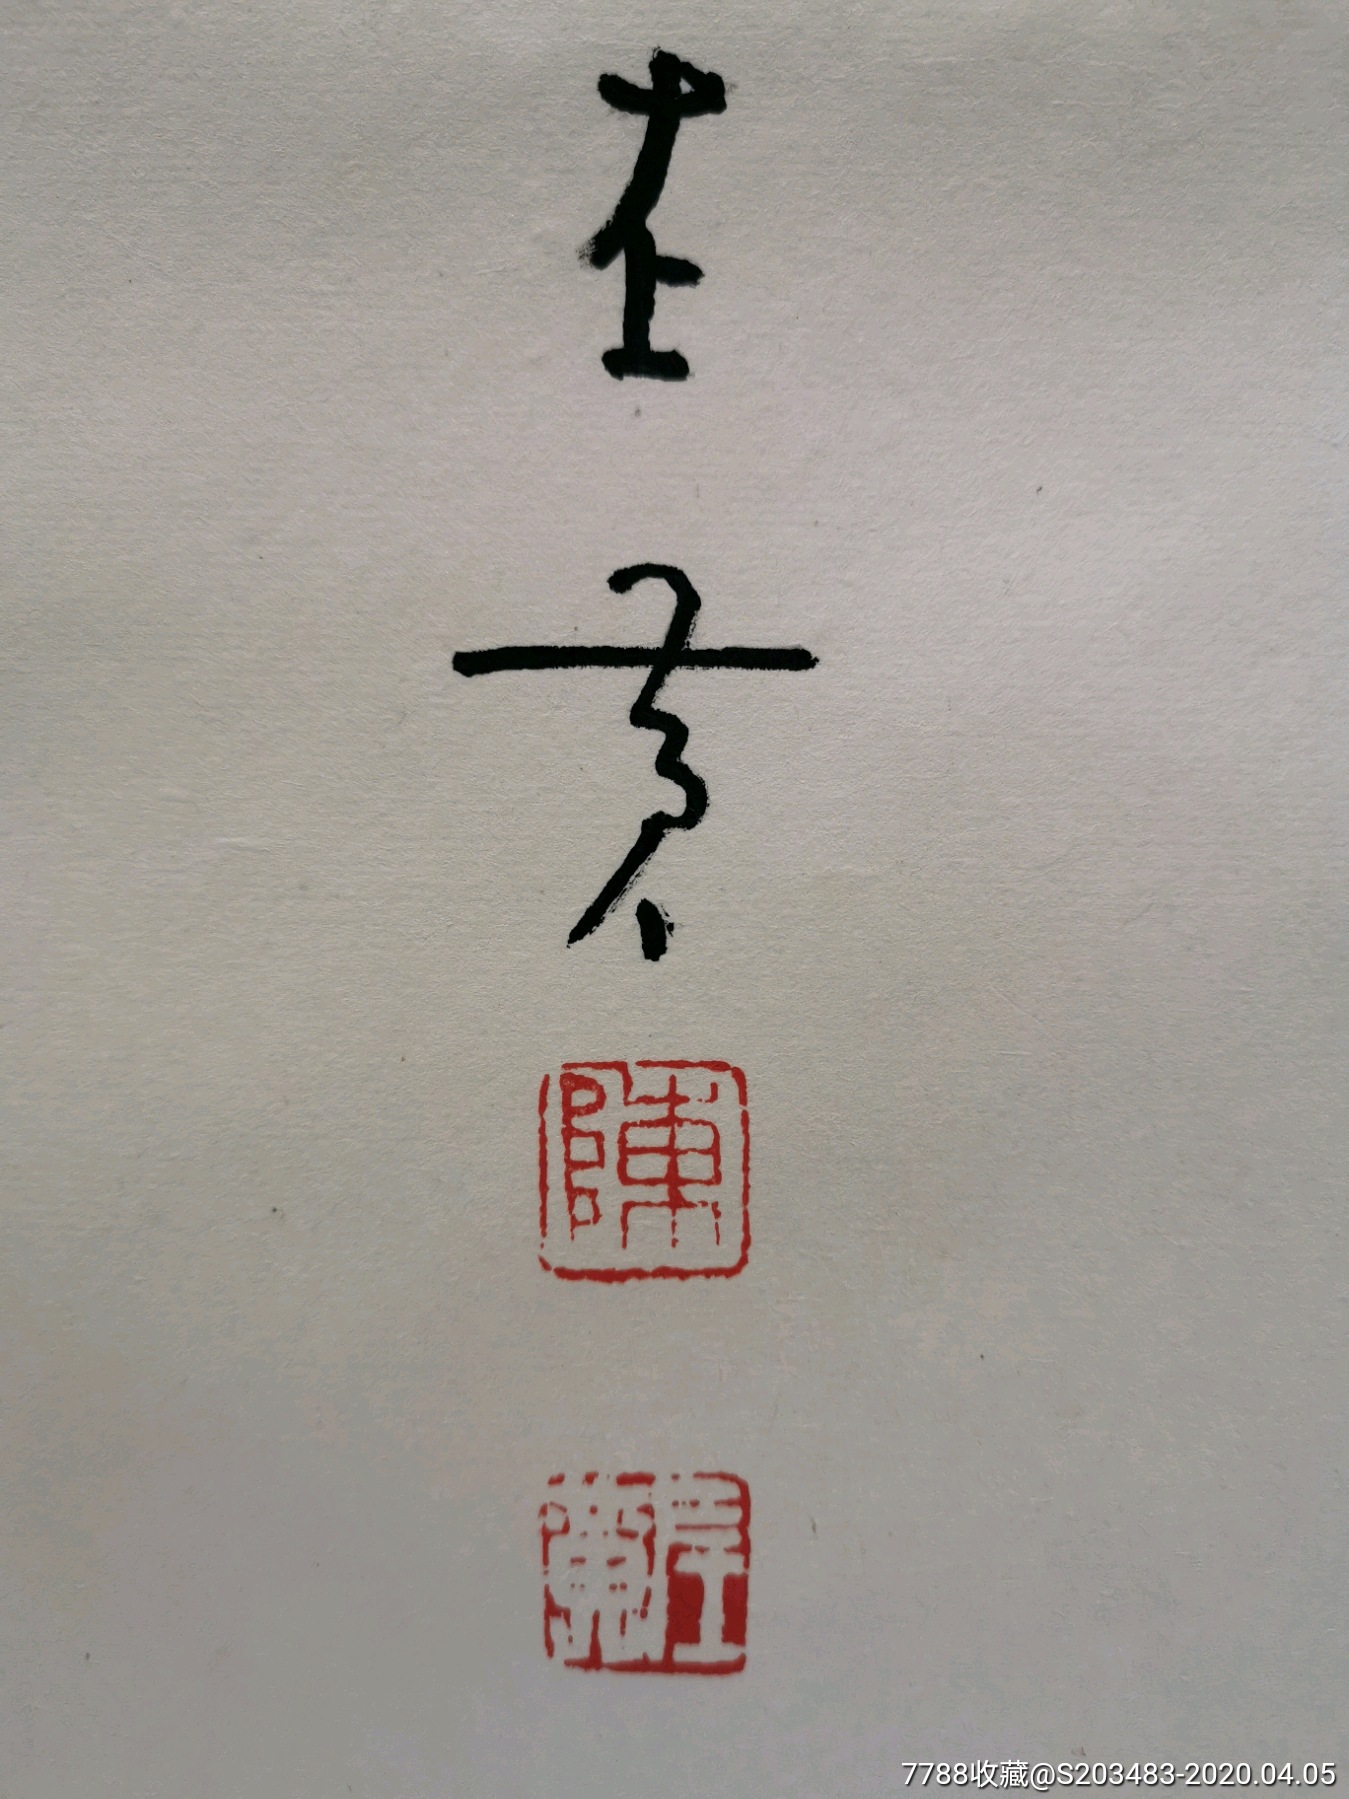 左
黄
陳
左黄
7788收藏@S203483-2020.04.05